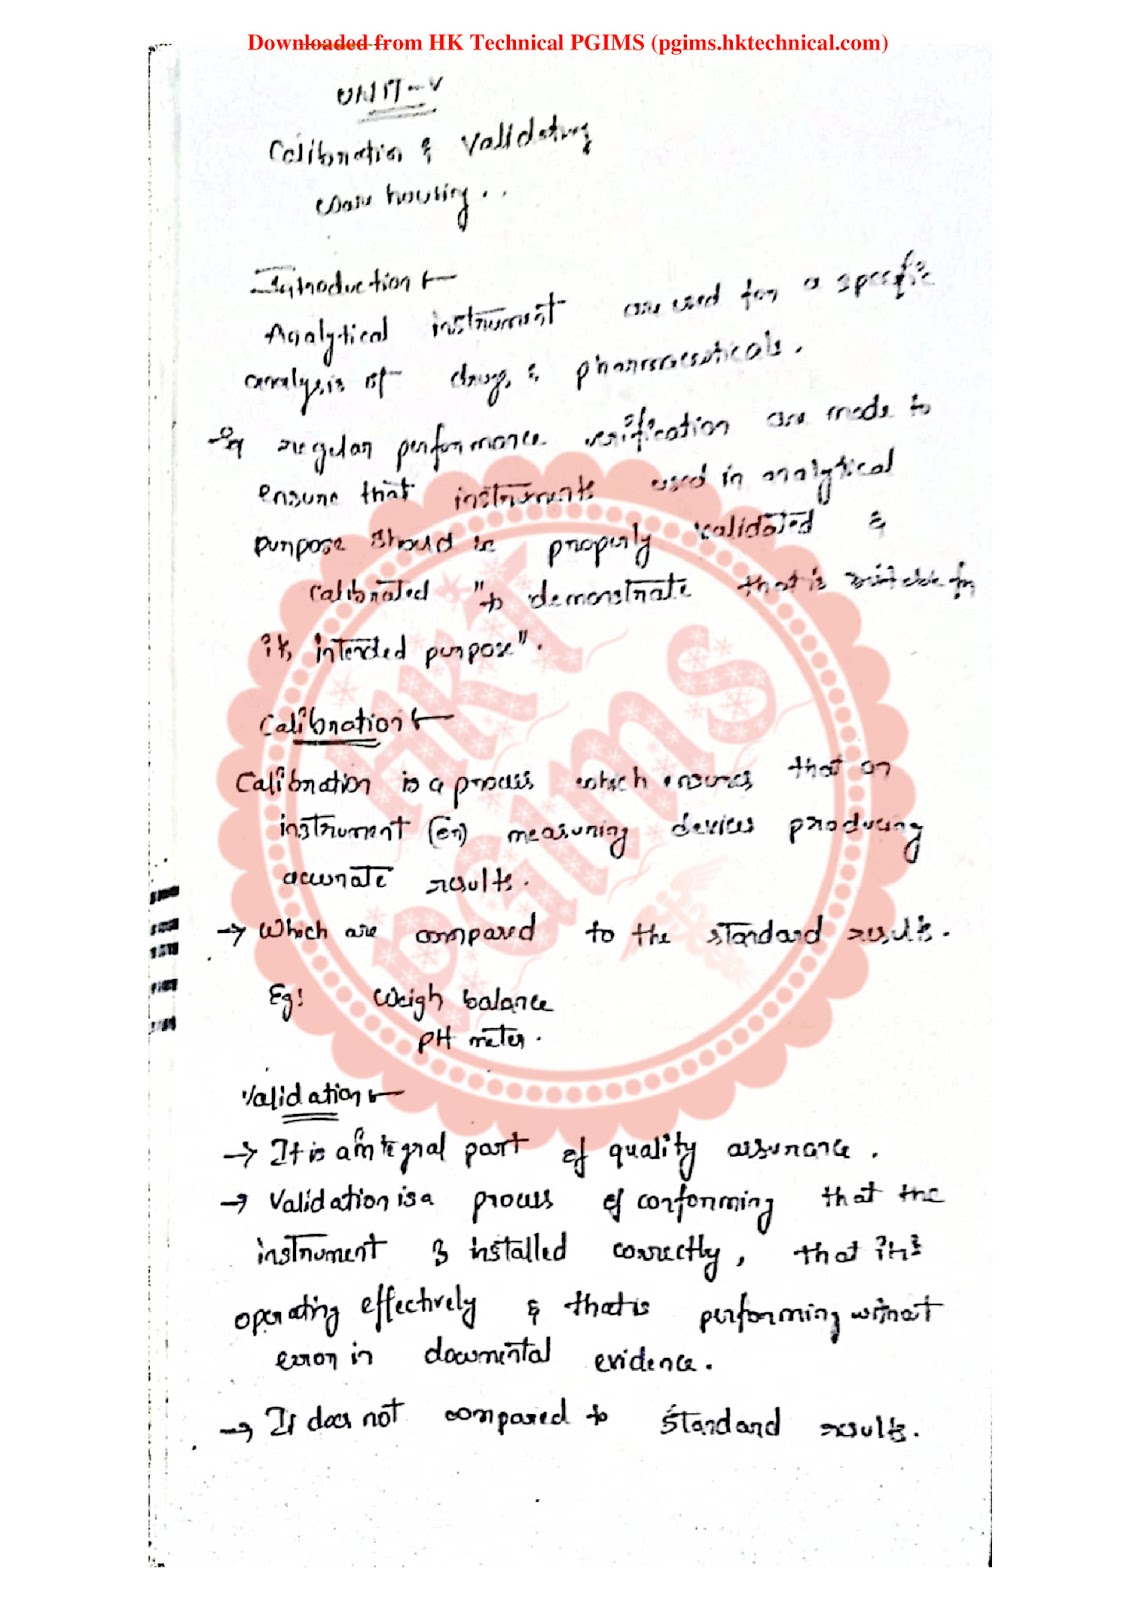 Downloaded from HK Technical PGIMS (pgims.hktechnical.com)
UNIT-V
Calibration & Validating
ware housing..
Introduction:-
Analytical instrument are used for a specific
analysis of drugs & pharmaceuticals.
→ A regular performance verification are made to
ensure that instruments used in analytical
purpose should be properly validated &
calibrated "to demonstrate that is suitable for
its intended purpose".
Calibration:-
Calibration is a process which ensures that an
instrument (or) measuring devices producing
accurate results.
→ Which are compared to the standard results.
Eg: Weigh balance
pH meter.
Validation:-
→ It is a integral part of quality assurance.
→ Validation is a process of conforming that the
instrument is installed correctly, that it is
operating effectively & that is performing without
error in documental evidence.
→ It does not compared to standard results.
HKT
PGIMS